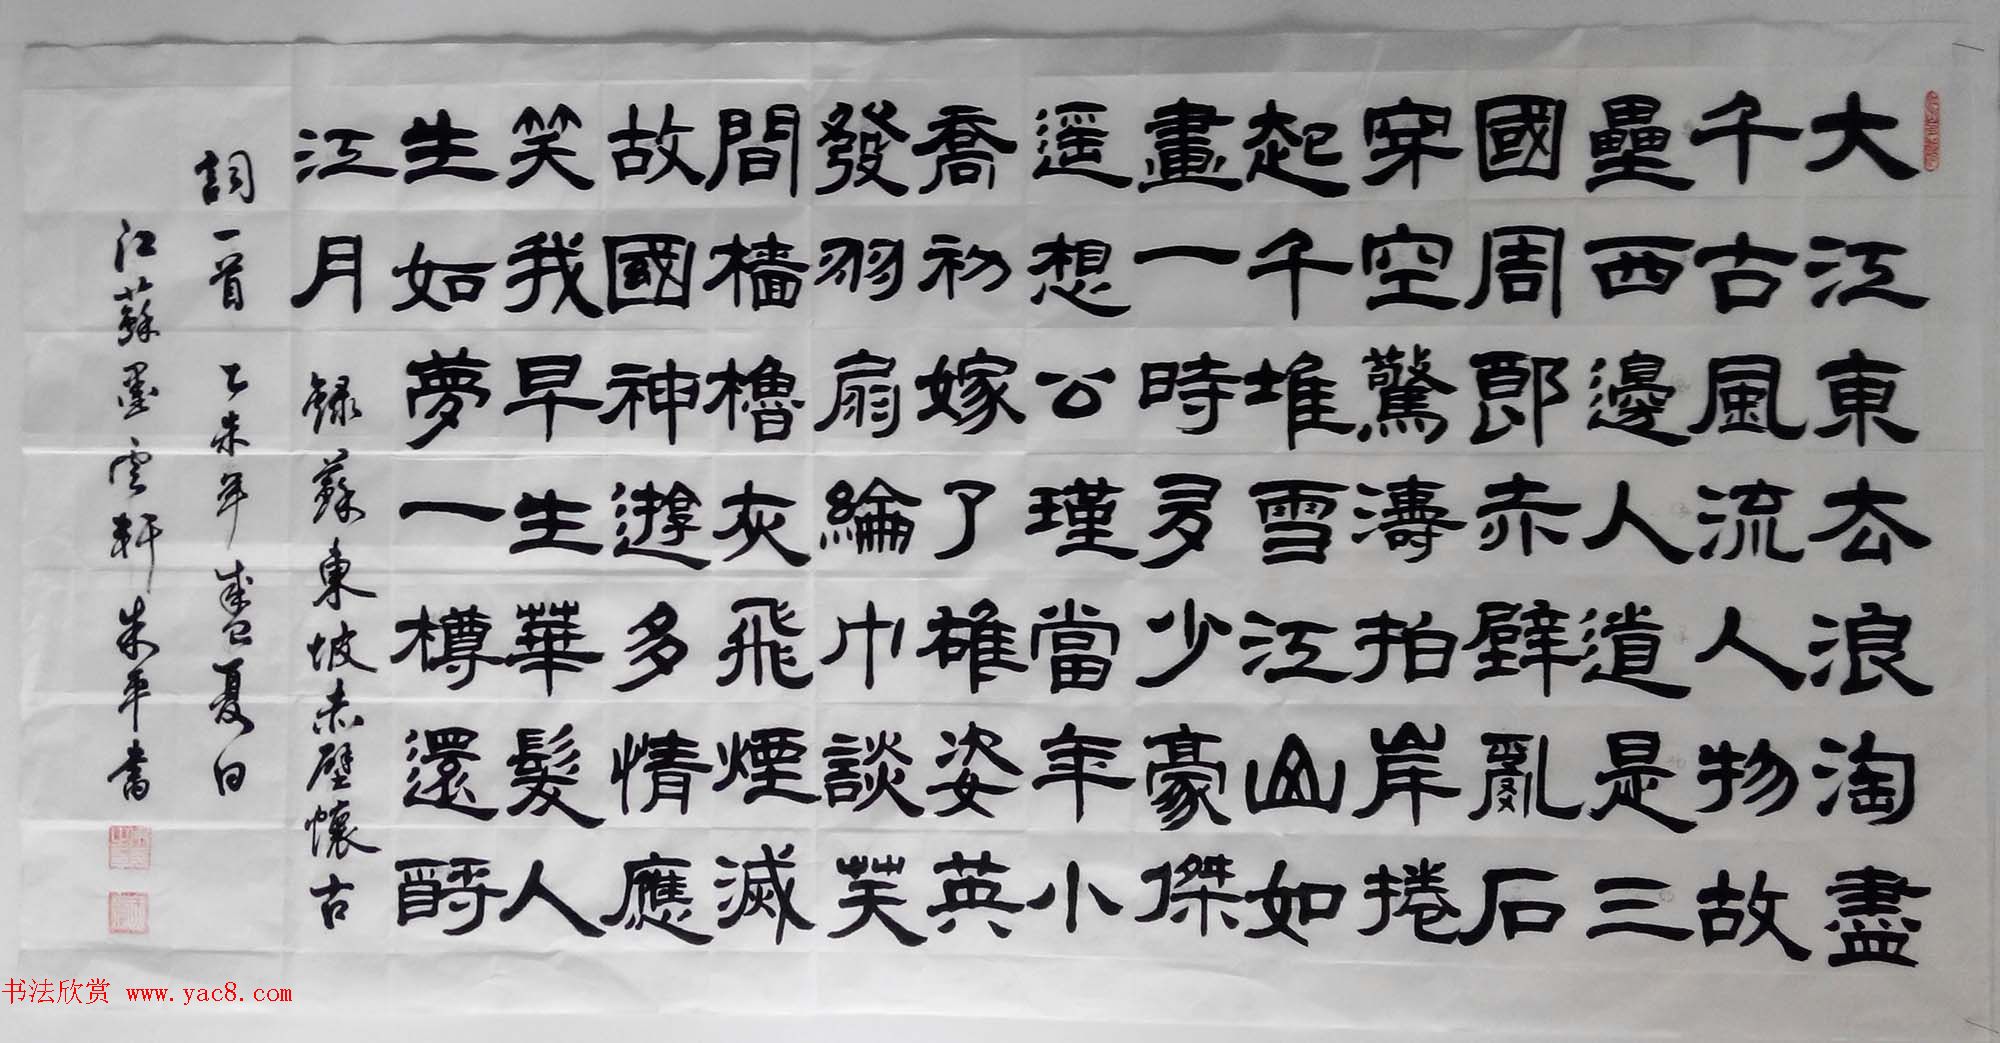 大江東去浪淘盡
千古風流人物故
壘西邊人道是三
國周郎赤壁亂石
穿空驚濤拍岸捲
起千堆雪江山如
畫一時多少豪傑
遥想公瑾當年小
喬初嫁了雄姿英
發羽扇綸巾談笑
間檣櫓灰飛煙滅
故國神遊多情應
笑我早生華髮人
生如夢一樽還酹
江月 録蘇東坡赤壁懷古
詞一首 乙未年盛夏日
江蘇墨云軒朱平書
书法欣赏 www.yac8.com